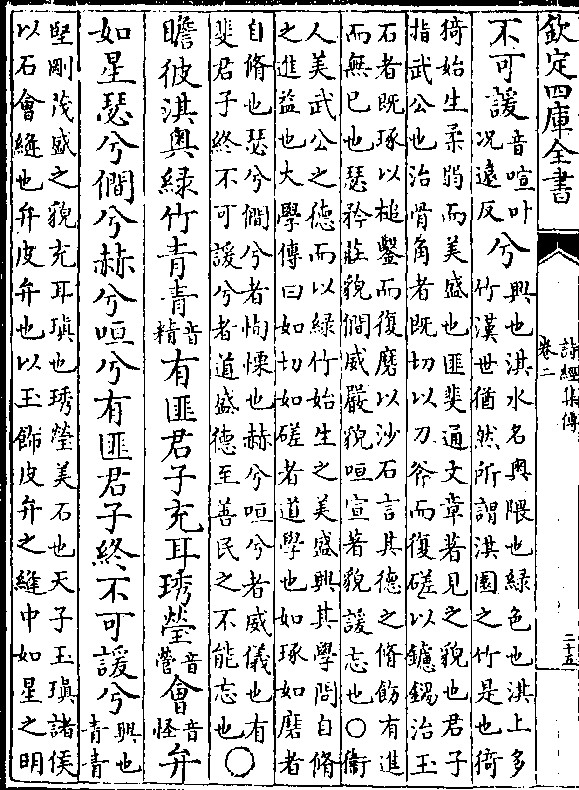 欽定四庫全書
詩經集傳
卷二
二十五
不可諼音喧叶況遠反兮興也淇水名奧隈也綠色也淇上多
竹漢世猶然所謂淇園之竹是也猗
猗始生柔弱而美盛也匪斐通文章著見之貌也君子
指武公也治骨角者既切以刀斧而復磋以鑢鐋治玉
石者既琢以槌鑿而復磨以沙石言其德之脩飭有進
而無已也瑟矜莊貌僩威嚴貌咺宣著貌諼忘也○衛
人美武公之德而以綠竹始生之美盛興其學問自脩
之進益也大學傳曰如切如磋者道學也如琢如磨者
自脩也瑟兮僩兮者恂慄也赫兮咺兮者威儀也有
斐君子終不可諼兮者道盛德至善民之不能忘也○
瞻彼淇奧綠竹青青音精有匪君子充耳琇瑩音營會音怪弁
如星瑟兮僩兮赫兮咺兮有匪君子終不可諼兮興也青青
堅剛茂盛之貌充耳瑱也琇瑩美石也天子玉瑱諸侯
以石會縫也弁皮弁也以玉飾皮弁之縫中如星之明